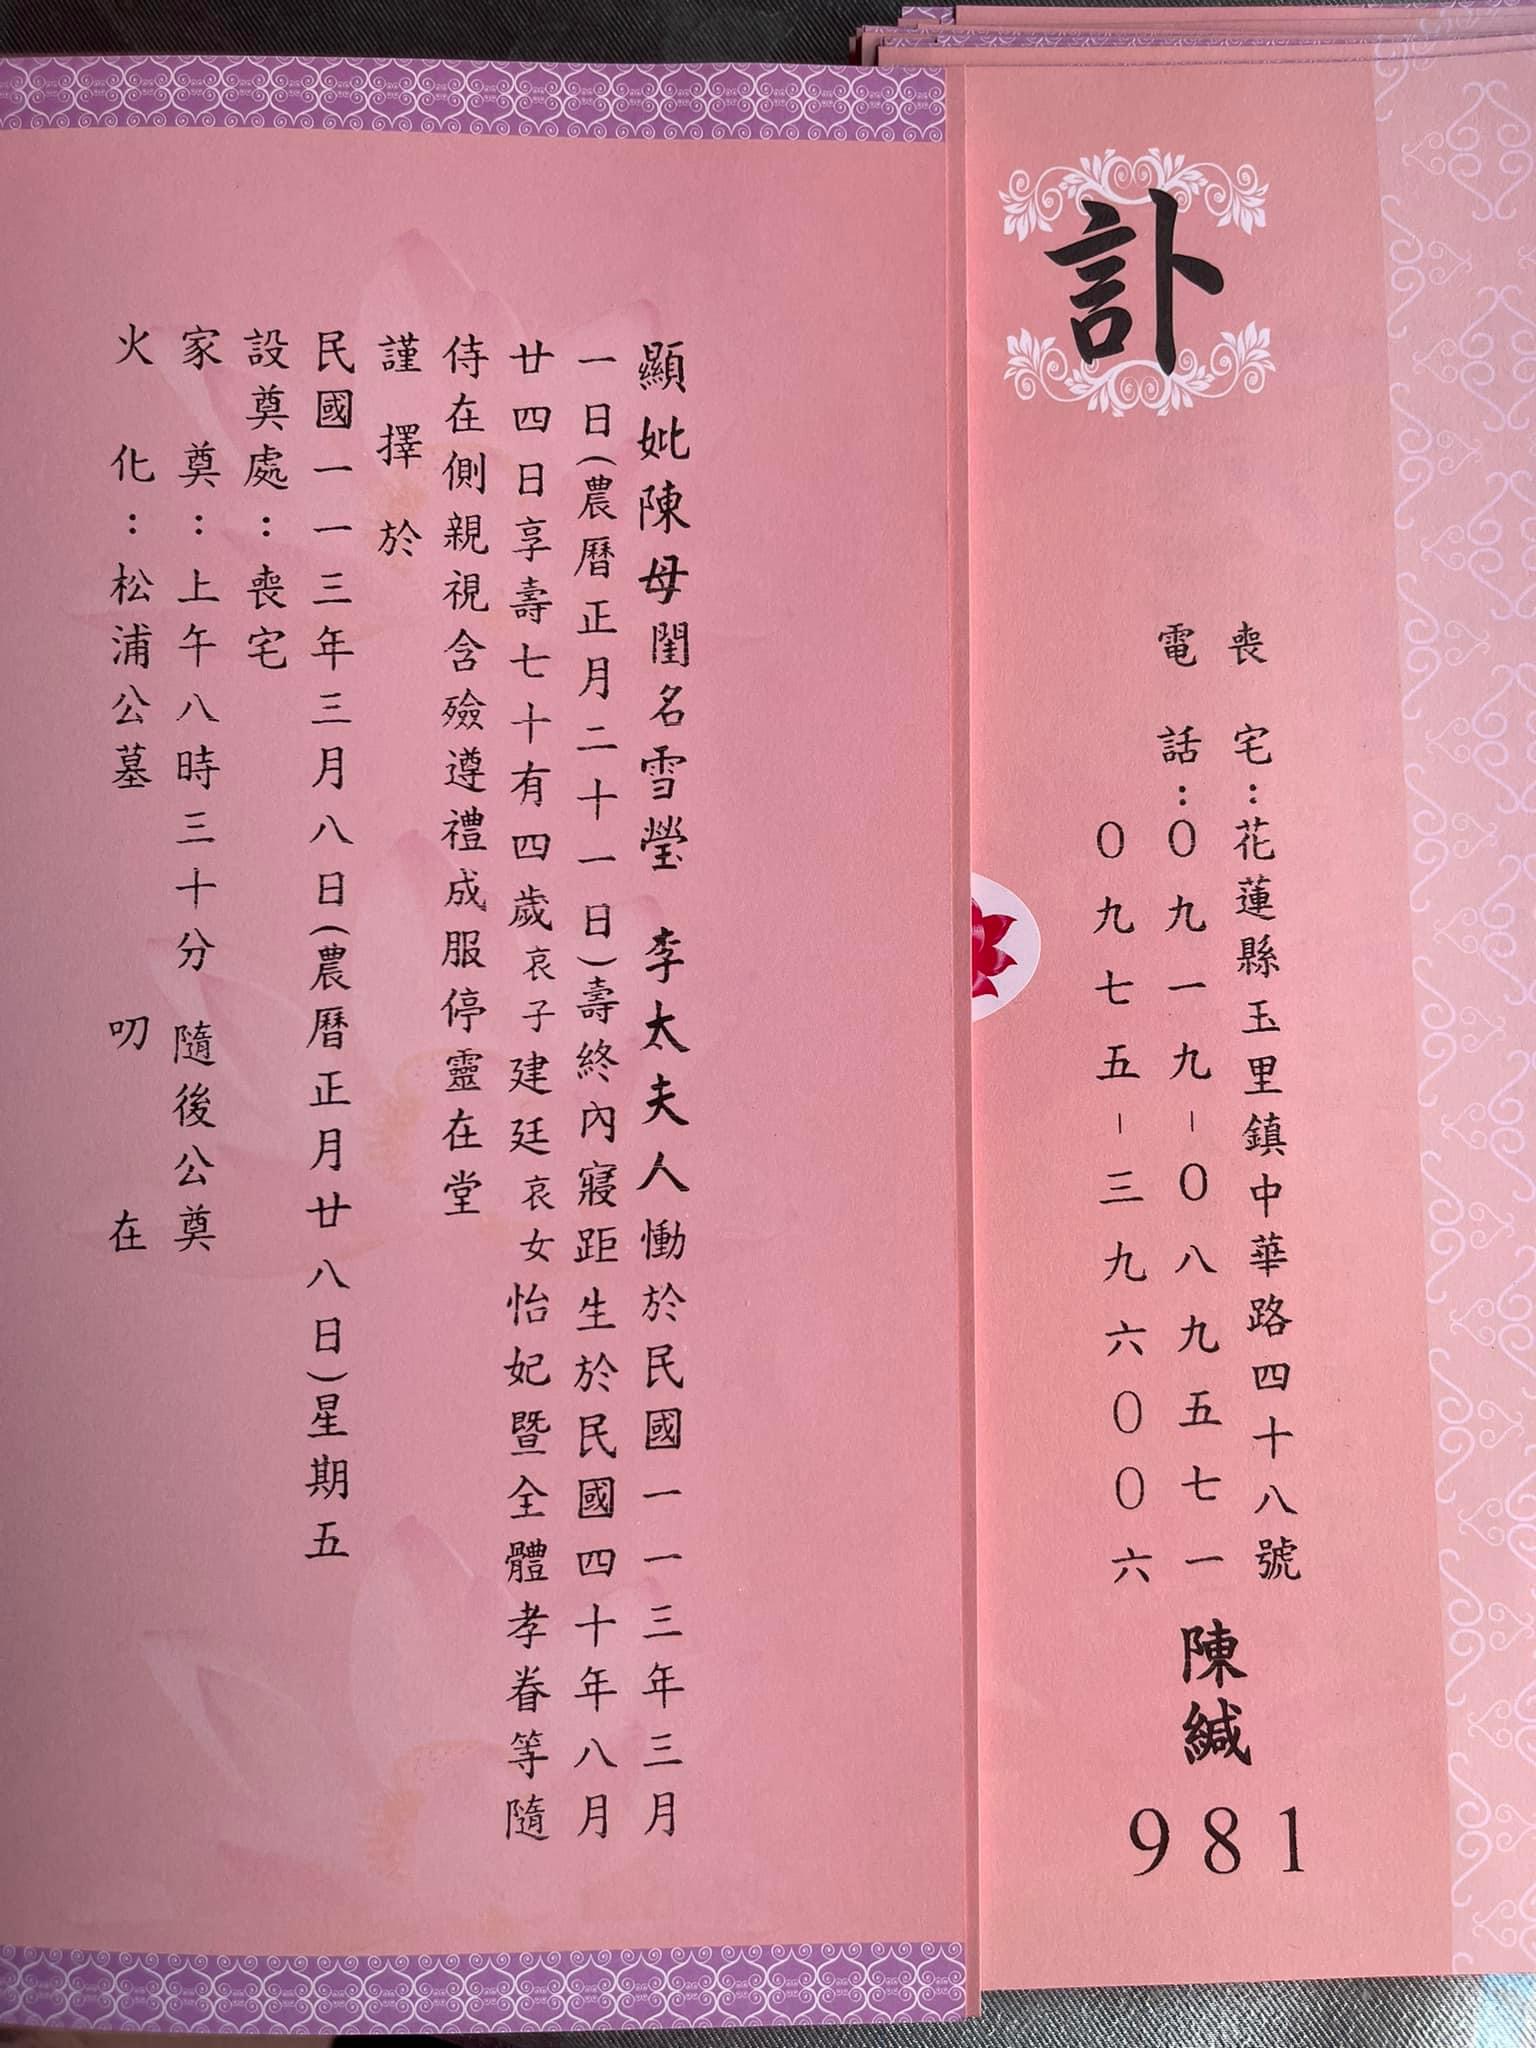 訃
喪宅：花蓮縣玉里鎮中華路四十八號
電話：０九一九－０八九五七一
０九七五－三九六００六
陳緘
981
顯妣陳母閨名雪瑩　李太夫人慟於民國一一三年三月
一日(農曆正月二十一日)壽終內寢距生於民國四十年八月
廿四日享壽七十有四歲哀子建廷哀女怡妃暨全體孝眷等隨
侍在側親視含殮遵禮成服停靈在堂
謹擇於
民國一一三年三月八日(農曆正月廿八日)星期五
設奠處：喪宅
家奠：上午八時三十分　隨後公奠
火化：松浦公墓　叨在